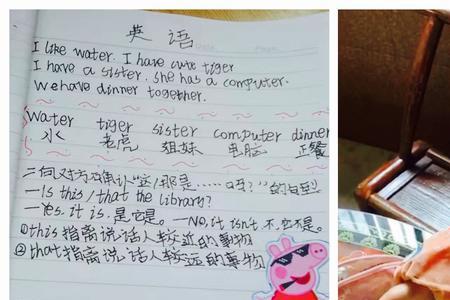 英语
I like water. I have cute tiger
I have a sister. she has a computer.
We have dinner together.
water tiger sister computer dinner
水 老虎 姐妹 电脑 正餐
二.向对方确认"这/那是……吗?"的句型
—Is this/that the library?
—Yes. it is. 是它是。 —No, it isn't 不,它不是。
①this指离说话人较近的事物
②that指离说话人较远的事物